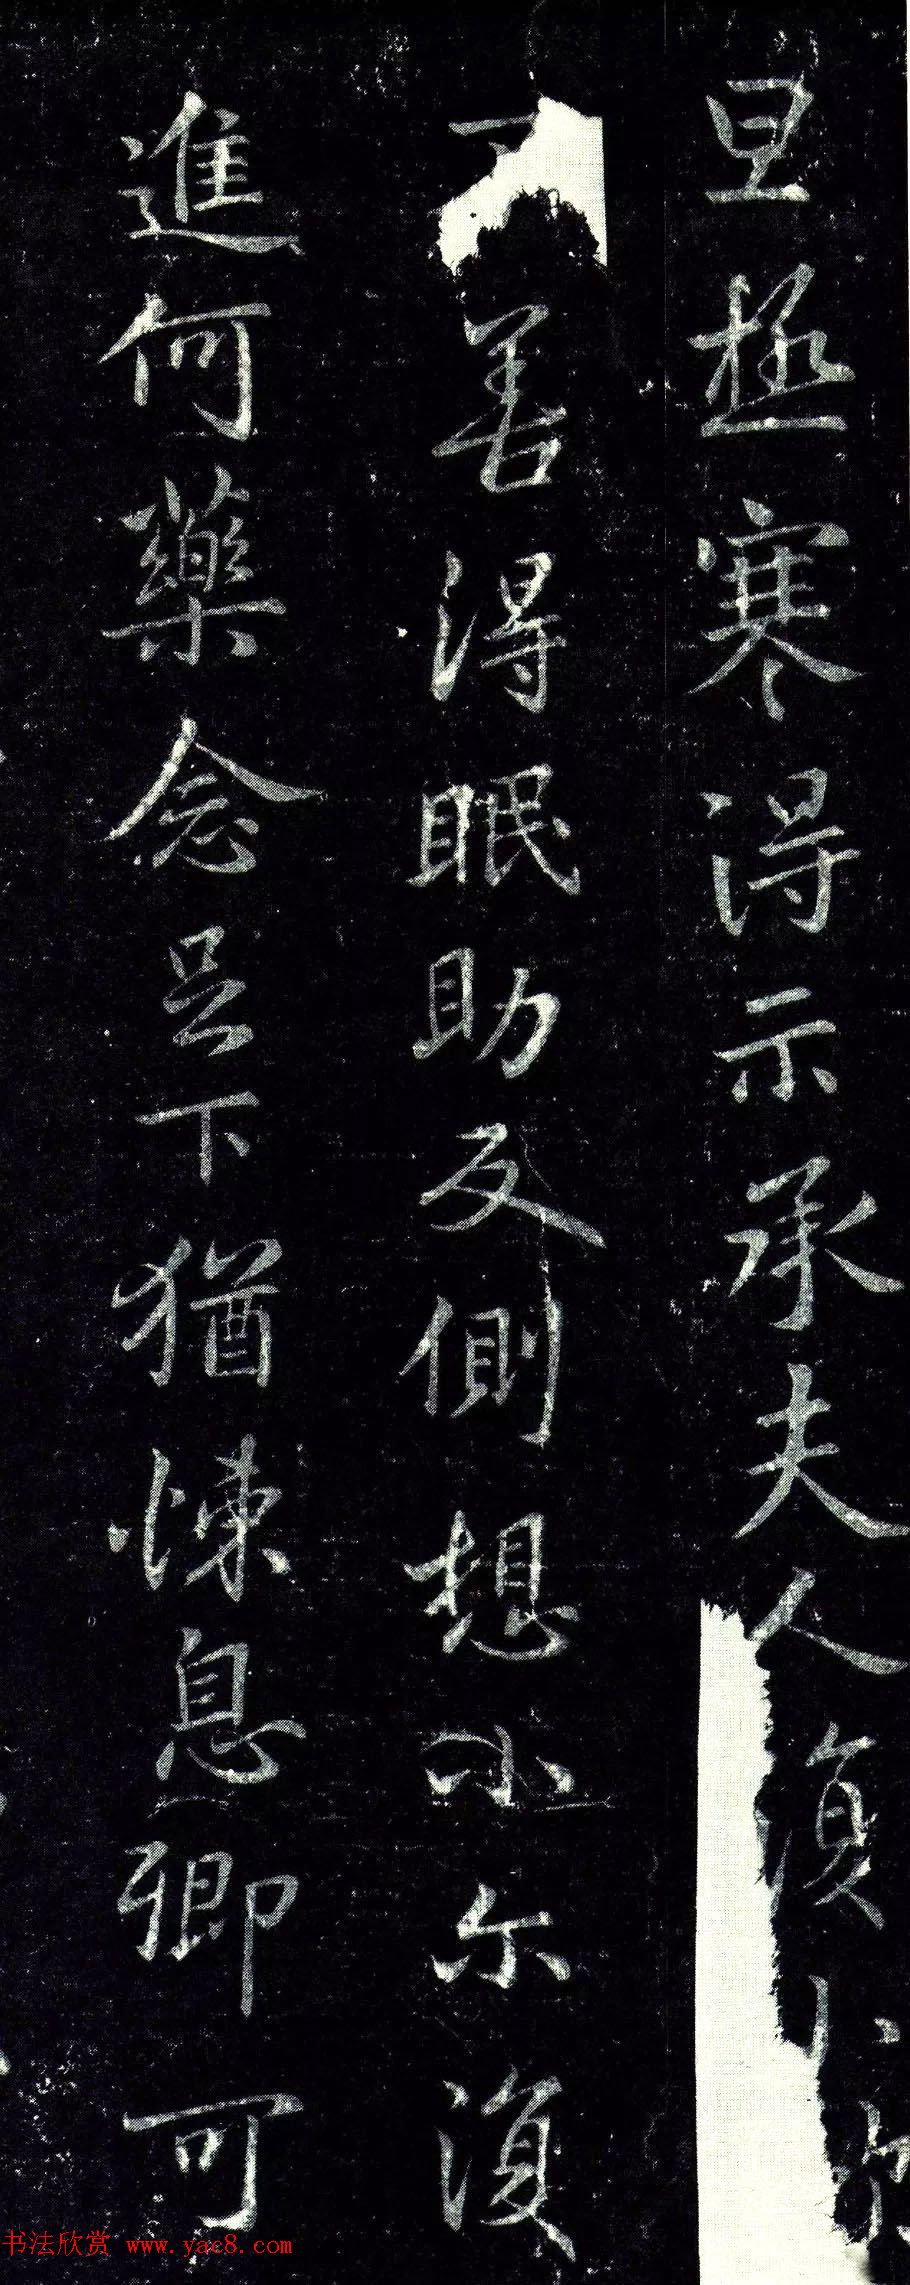 旦極寒得示承夫人復
善得眠助反側想小尔復
進何藥念足下猶悚息卿可
书法欣赏 www.yac8.com